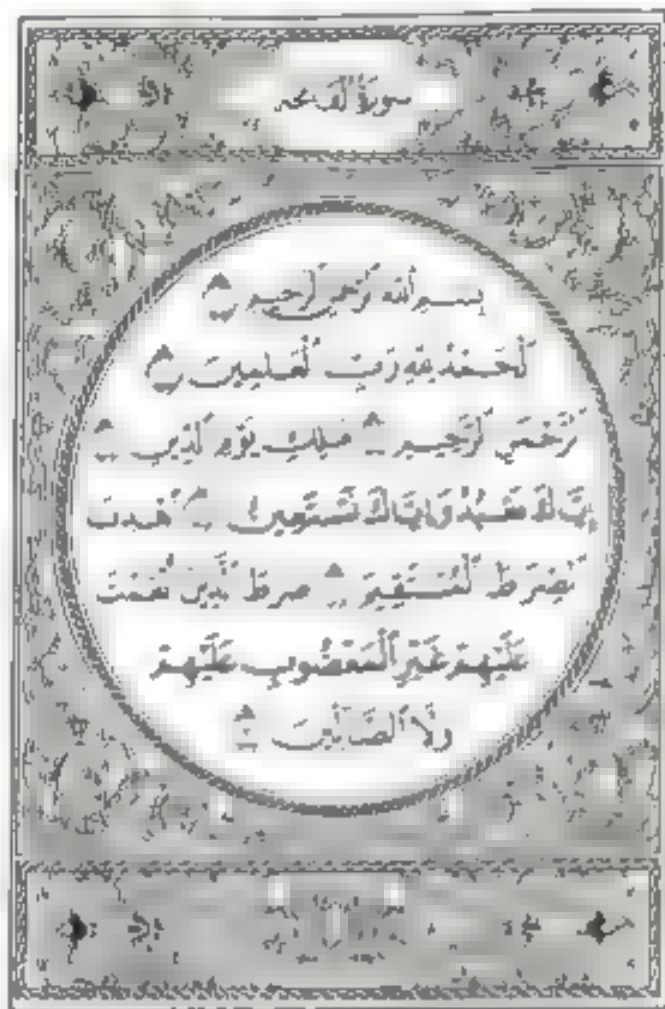 سورة الفاتحة
بِسْمِ ٱللَّهِ ٱلرَّحْمَٰنِ ٱلرَّحِيمِ
ٱلْحَمْدُ لِلَّهِ رَبِّ ٱلْعَٰلَمِينَ
ٱلرَّحْمَٰنِ ٱلرَّحِيمِ مَٰلِكِ يَوْمِ ٱلدِّينِ
إِيَّاكَ نَعْبُدُ وَإِيَّاكَ نَسْتَعِينُ ٱهْدِنَا
ٱلصِّرَٰطَ ٱلْمُسْتَقِيمَ صِرَٰطَ ٱلَّذِينَ أَنْعَمْتَ
عَلَيْهِمْ غَيْرِ ٱلْمَغْضُوبِ عَلَيْهِمْ
وَلَا ٱلضَّآلِّينَ